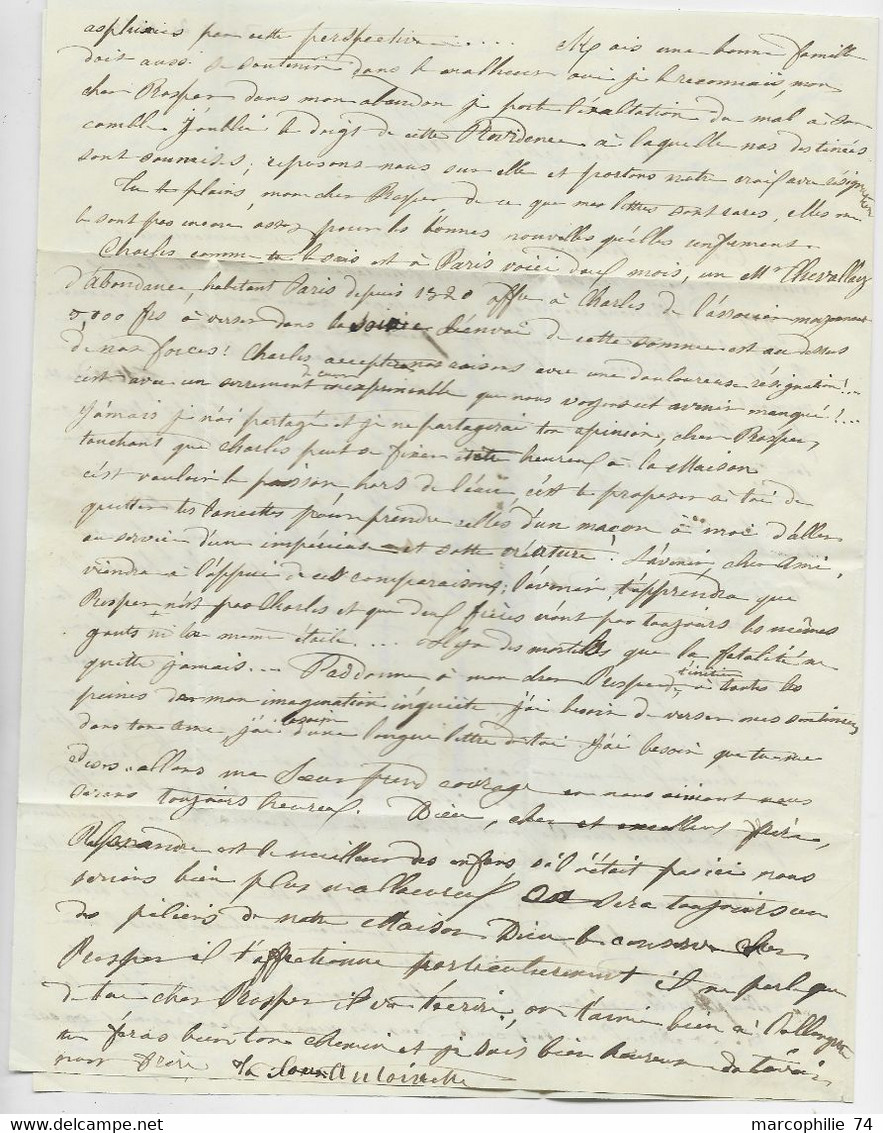 asphixiés par cette perspective..... Mais une bonne famille
doit aussi se soutenir dans le malheur oui je le reconnais, mon
cher Prosper dans mon abandon je porte l'éxaltation du mal à son
comble. J'oublie le doigt de cette Providence à laquelle nos destinées
sont soumises, reposons nous sur elle et portons notre croix avec résignation
Tu te plains mon cher Prosper de ce que mes lettres sont rares, elles ne
le sont pas même assez pour les bonnes nouvelles qu'elles renferment.
Charles comme tu le sais est à Paris voici deux mois, un Mr Chevallay
d'abondance, habitant Paris depuis 1820 offre à Charles de l'associer moyennant
5,000 frs à verser dans la L'envoi de cette somme est au dessus
de nos forces! Charles accepte nos raisons avec une douloureuse résignation!...
c'est avec un serrement de cœur inexprimable que nous voyons cet avenir manqué!...
Jamais je n'ai partagé et je ne partagerai ton opinion, cher Prosper,
touchant que Charles peut se fixer et être heureux à la Maison
c'est vouloir le poisson hors de l'eau, c'est te proposer à toi de
quitter tes lancettes pour prendre celles d'un maçon à moi d'aller
au service d'un impérieuse et sotte créature! L'avenir, cher ami,
viendra à l'appui de ces comparaisons; l'avenir t'apprendra que
Prosper n'est pas Charles et que deux frères n'ont pas toujours les mêmes
gouts ni la même étoile.... Il y a des mortels que la fatalité ne
quitte jamais.... Pardonne à mon cher Prosper de t'initier à toutes les
peines de mon imagination inquiète j'ai besoin de verser mes
dans ton âme, j'ai besoin d'une longue lettre de toi j'ai besoin que tu me
dises.. allons ma Sœur prend courage en nous aimant nous
serons toujours heureux. Dieu, cher et excellent frère,
est le meilleur des enfans s'il n'était pas ici nous
serions bien plus malheureux sera toujours un
des piliers de notre Maison Dieu le conserve cher
Prosper il t'affectionne particulièrement il ne parle que
de toi cher Prosper il va t'écrire, on t'aime bien à
tu feras bien ton chemin et je suis bien heureuse de t'avoir
pour frère ta sœur Antoinette
marcophilie 74